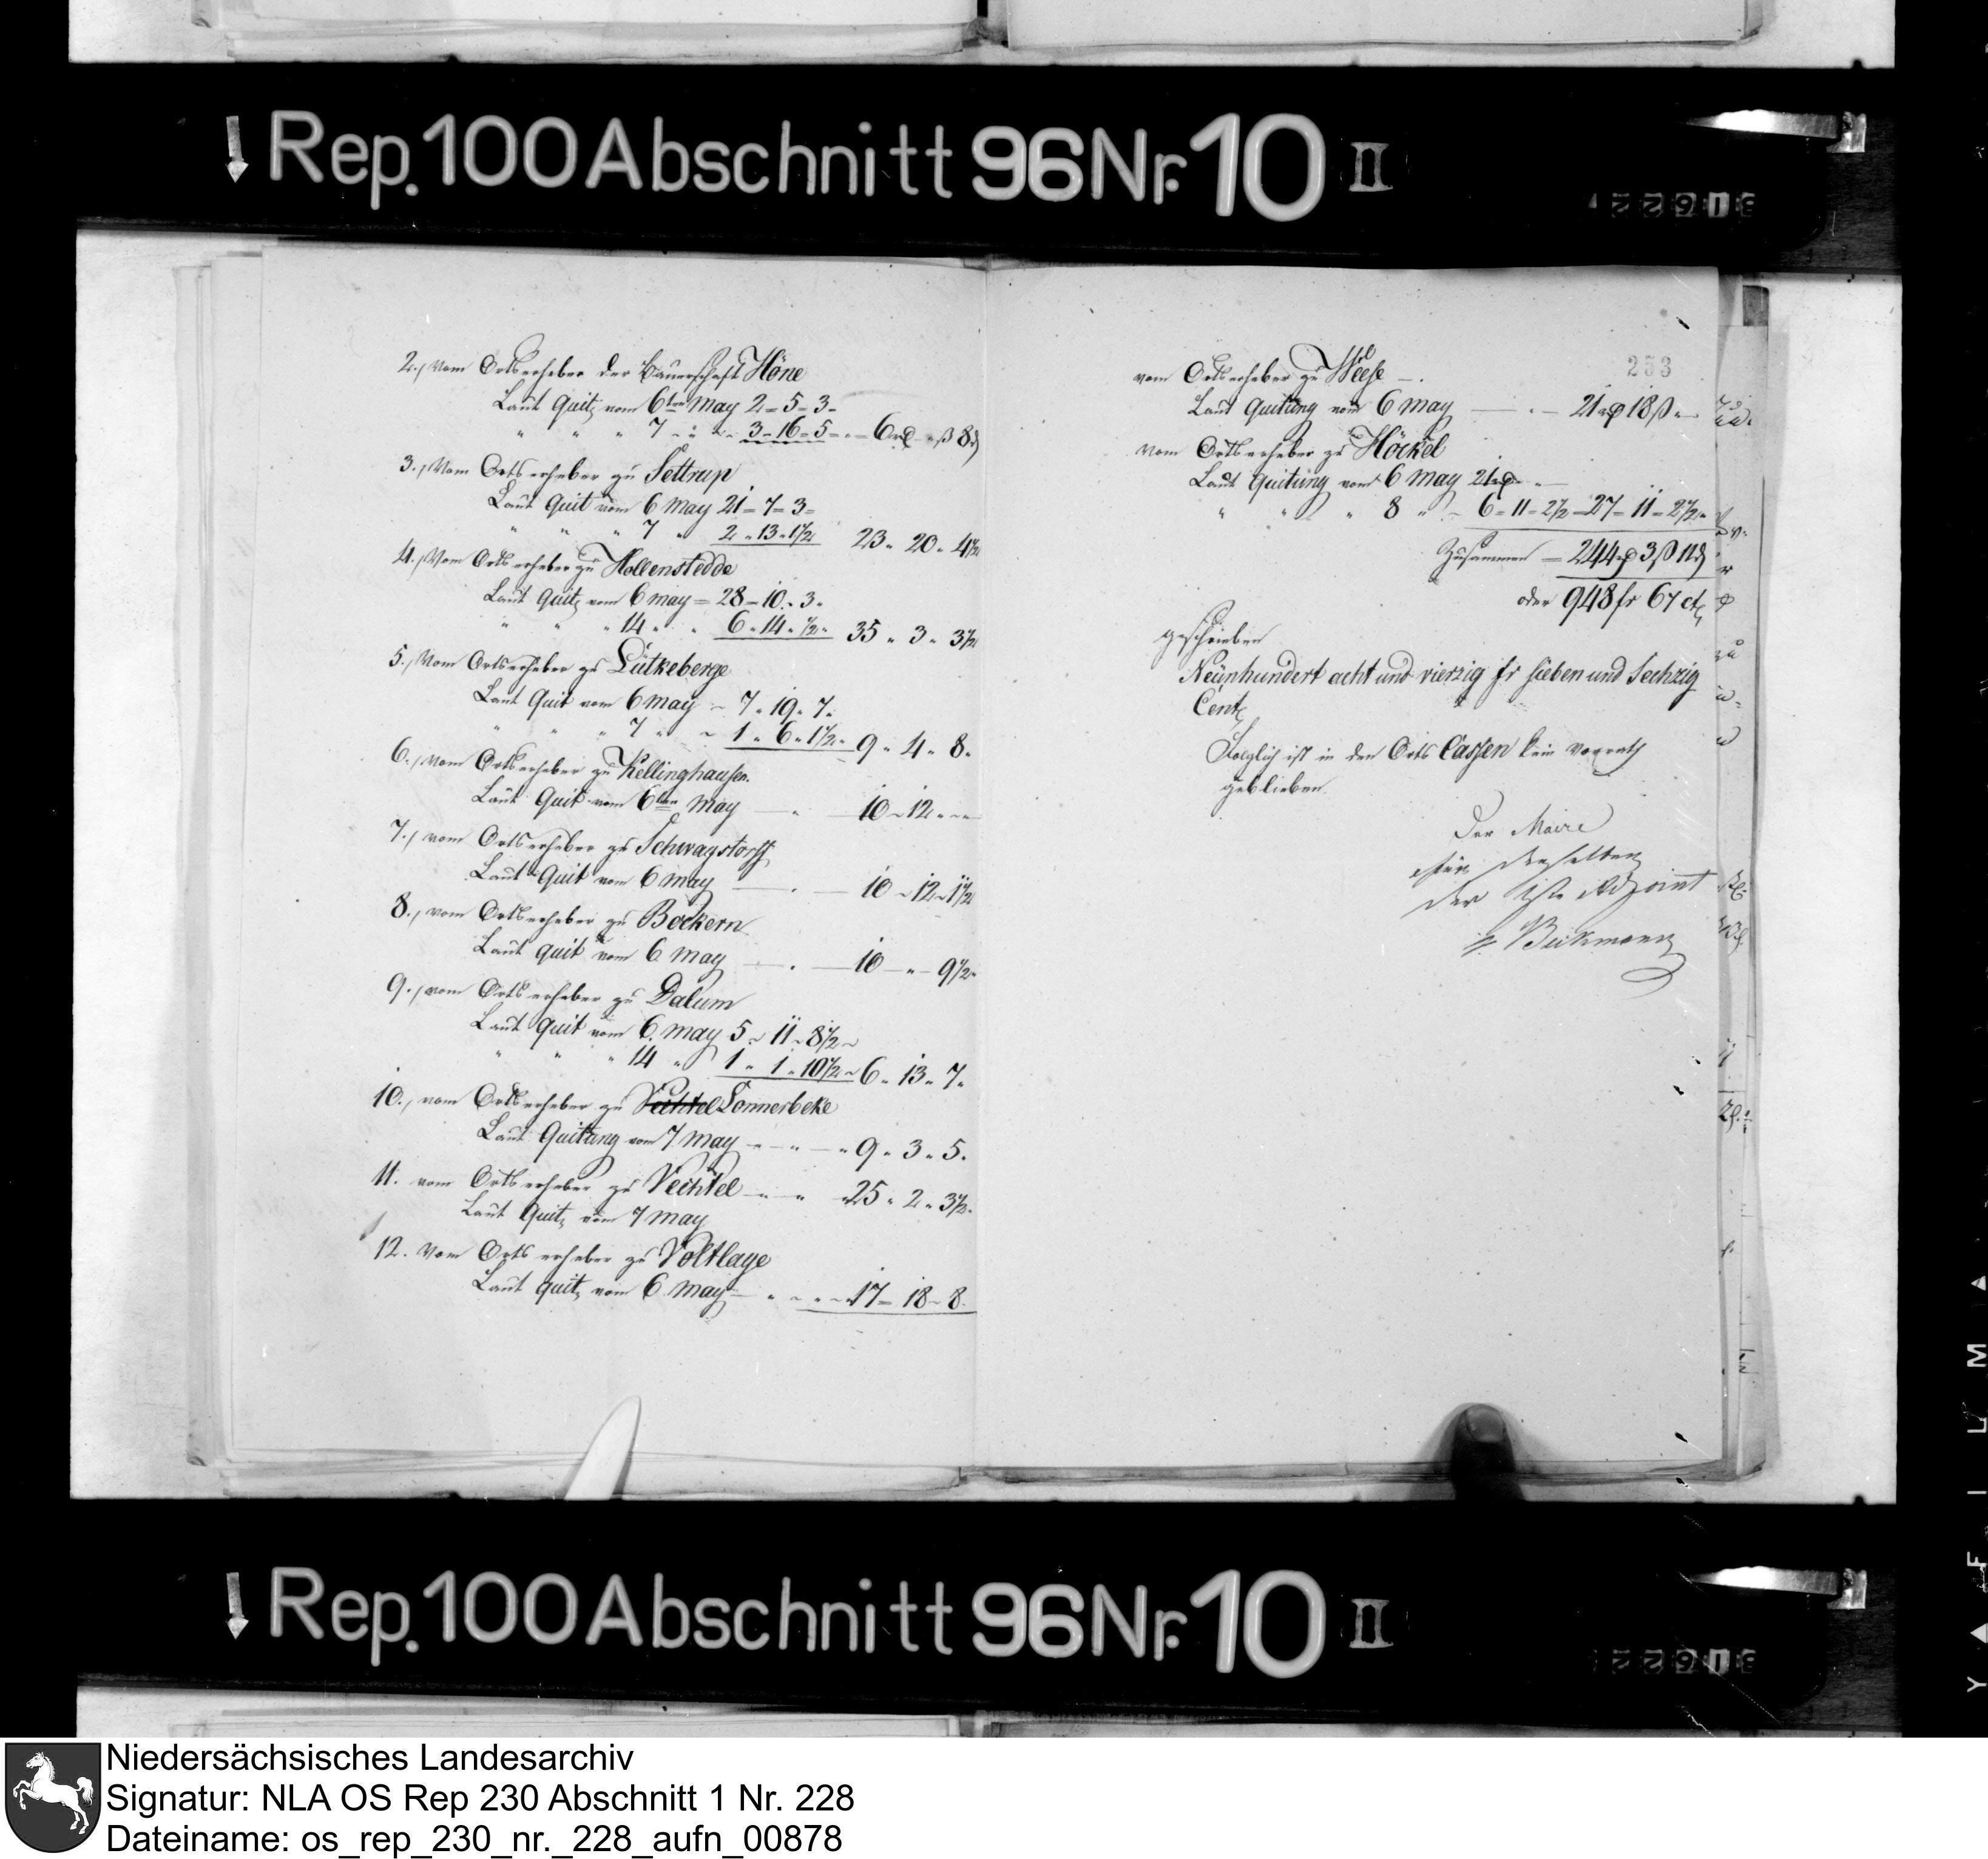 Rep. 100 Abschnitt 96 Nr. 10 II
2., vom Ortserheber der Bauerschaft Höne
Laut Quit, vom 6ten May 2 = 5 = 3 -
" " " 7 - " - 3 - 16 - 5 - " - 6 rℓ - " ß 8 ₰
3., Vom Ortserheber zu Settrup
Laut Quit vom 6 May 21 = 7 = 3 =
" " " 7 " 2 " 13 " 1½ 23 " 20 " 4½
4., Vom Ortserheber zu Hollenstedde
Laut Quit, vom 6 may = 28 - 10 - 3 -
" " " 14 " " 6 " 14 " ½ " 35 " 3 " 3½
5., Vom Ortserheber zu Lütkeberge
Laut Quit vom 6 may - 7 " 19 " 7 "
" " " 7 " - 1 " 6 " 1½ " 9 " 4 " 8 "
6., vom Ortserheber zu Kellinghausen
Laut Quit vom 6ten May — " — 10 - 12 " - "
7., vom Ortserheber zu Schwagstorff
Laut Quit vom 6 may — " — 10 - 12 - 1½
8., vom Ortserheber zu Bockern
Laut Quit vom 6 may — " — 10 - " - 9½ "
9., vom Ortserheber zu Dalum
Laut Quit vom 6. may 5 - 11 - 8½ -
" " " 14 " 1 " 1 " 10½ - 6 " 13 " 7 "
10., vom Ortserheber zu Vechtel Lonnerbeke
Laut Quitung vom 7 may - " - " 9 " 3 " 5 "
11. vom Ortserheber zu Vechtel - " - " 25 " 2 " 3½ "
Laut Quit, vom 7 may
12. Vom Ortserheber zu Voltlage
Laut Quit, vom 6 may - " - " - 17 = 18 - 8
253
vom Ortserheber zu Weese — "
Laut Quitung vom 6 may — " — 21 rℓ 18 ß " —
vom Ortserheber zu Höckel
Laut Quitung vom 6 may 21 rℓ " —
" " " 8 " - 6 = 11 = 2½ - 27 = 11 = 2½ "
Zusammen = 244 rℓ 3 ß 11 ₰
oder 948 fr 67 ct,
geschrieben
Neünhundert acht und vierzig fr sieben und Sechzig
Cent,
Folglich ist in den Orts Cassen kein vorrath
geblieben.
Der Maire
für denselben
der 1ste Adjoint
Beckmann
Rep. 100 Abschnitt 96 Nr. 10 II
Niedersächsisches Landesarchiv
Signatur: NLA OS Rep 230 Abschnitt 1 Nr. 228
Dateiname: os_rep_230_nr._228_aufn_00878